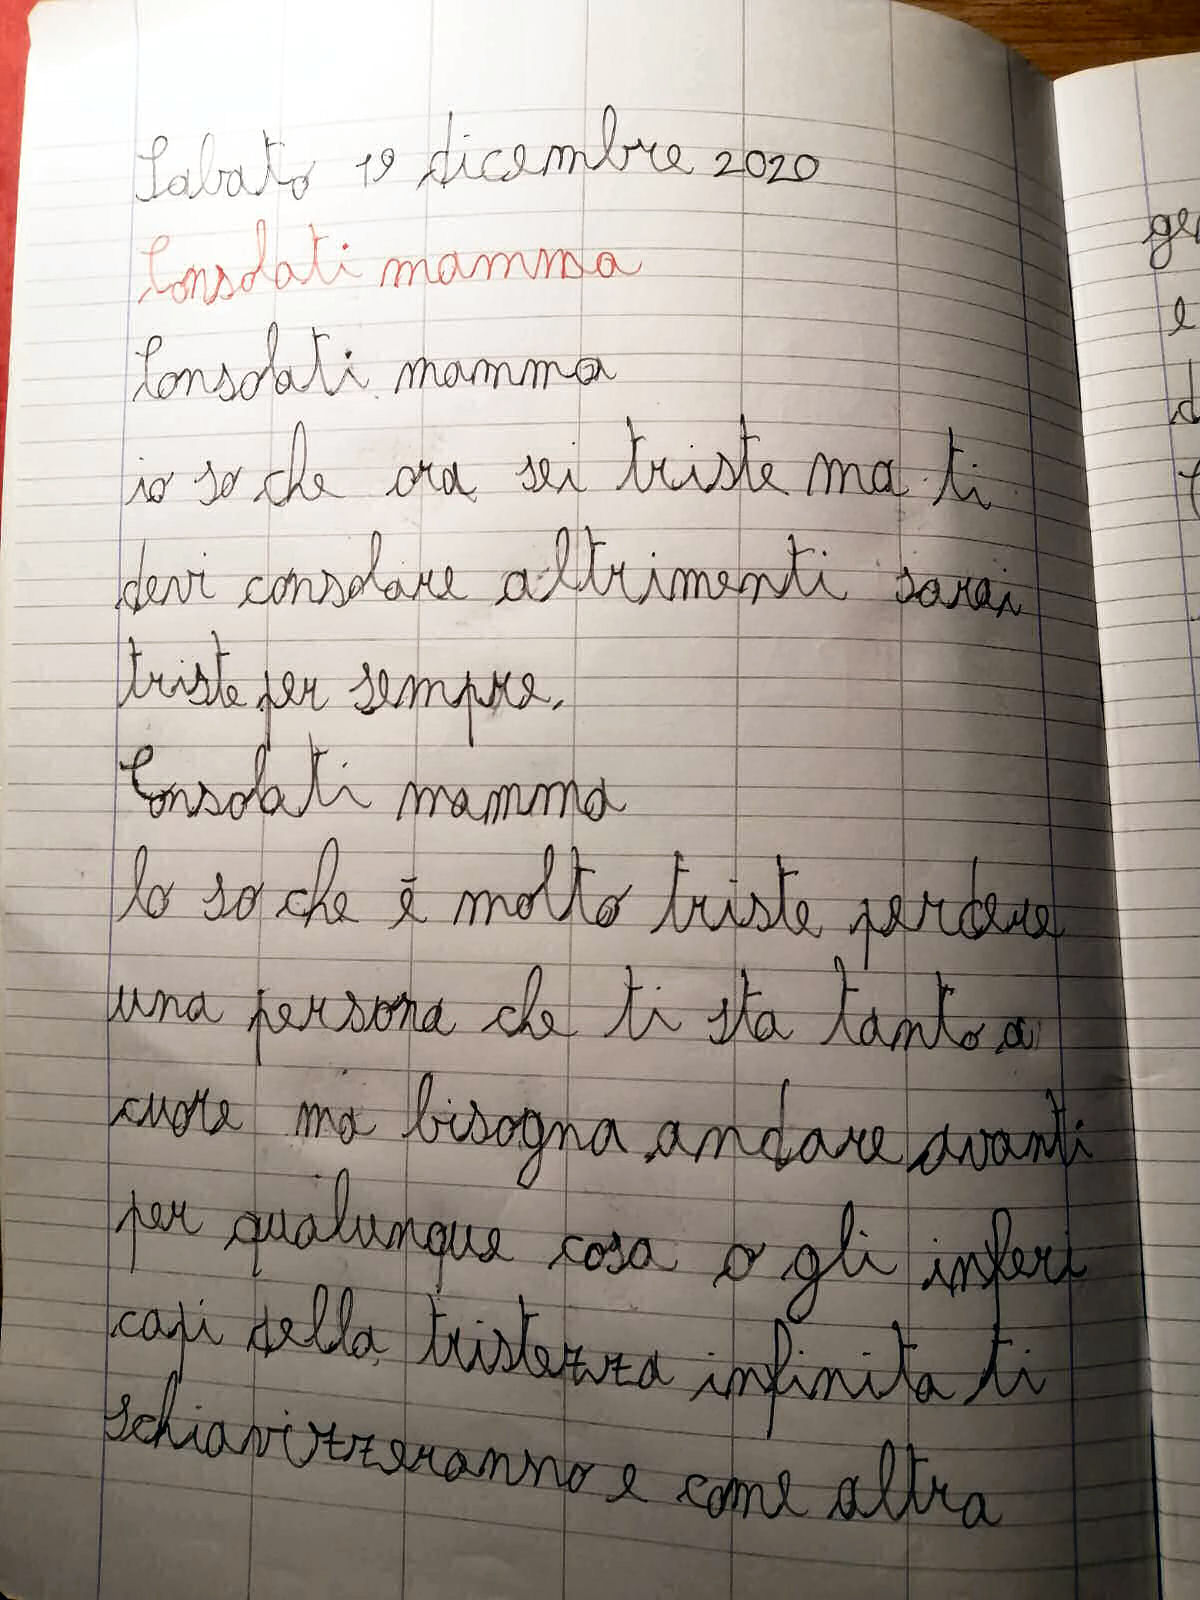 Sabato 19 dicembre 2020
Consolati mamma
Consolati mamma
io so che ora sei triste ma ti
devi consolare altrimenti sarai
triste per sempre.
Consolati mamma
lo so che è molto triste perdere
una persona che ti sta tanto a
cuore ma bisogna andare avanti
per qualunque cosa o gli inferi
capi della tristezza infinita ti
schiavizzeranno e come altra
ger
e
d